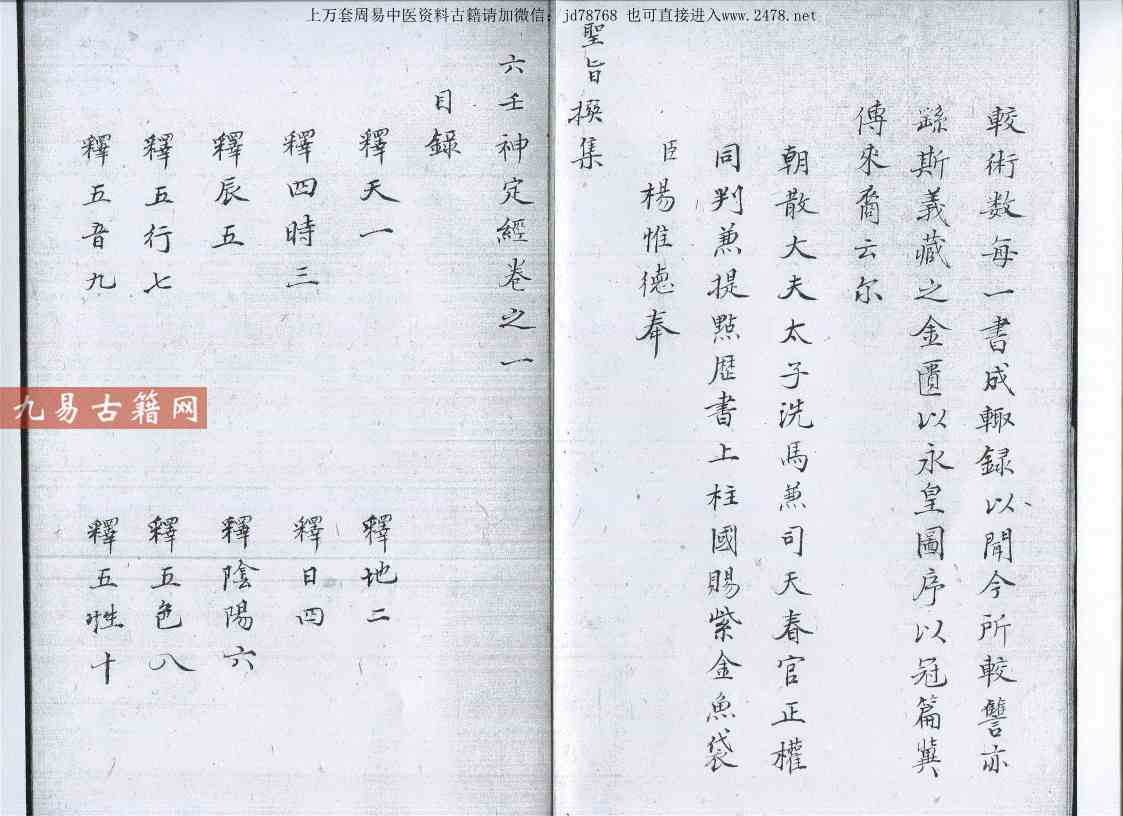 上万套周易中医资料古籍请加微信：jd78768 也可直接进入www.2478.net
較術数每一書成輙録以聞今所較讐亦
繇斯義藏之金匱以永皇圖序以冠篇冀
傳來裔云尔
朝散大夫太子洗馬兼司天春官正權
同判兼提點歴書上柱國賜紫金魚袋
臣楊惟德奉
聖旨撰集
六壬神定經卷之一
目録
釋天一 釋地二
釋四時三 釋日四
釋辰五 釋陰陽六
釋五行七 釋五色八
釋五音九 釋五性十
九易古籍网